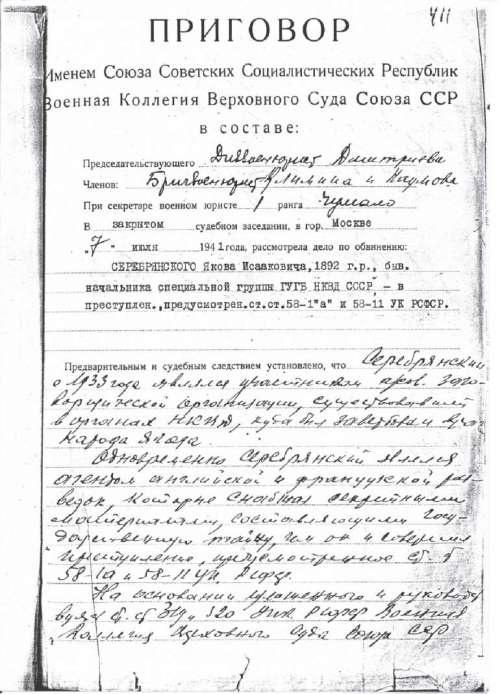 411
ПРИГОВОР
Именем Союза Советских Социалистических Республик
Военная Коллегия Верховного Суда Союза ССР
в составе:
Председательствующего Диввоенюрист Дмитриева
Членов: Бригвоенюрист Климина и Наумова
При секретаре военном юристе 1 ранга
В закрытом судебном заседании, в гор. Москве
„7" июля 1941 года, рассмотрела дело по обвинению:
СЕРЕБРЯНСКОГО Якова Исааковича, 1892 г.р., быв.
начальника специальной группы ГУГБ НКВД СССР, – в
преступлен., предусмотрен. ст.ст. 58-1"а" и 58-11 УК РСФСР.
Предварительным и судебным следствием установлено, что Серебрянский
с 1933 года являлся участником
организации, существовавшей
в органах НКВД, куда был завербован
народа Ягода
Одновременно Серебрянский являлся
агентом английской и французской раз-
ведок, которые снабжал секретными
материалами, составляющими госу-
дарственную тайну, чем он и совершил
преступление, предусмотренное ст. ст.
58-1а и 58-11 УК РСФСР.
На основании изложенного и руковод
ст. ст. 319 и 320 УПК РСФСР Военная
Коллегия Верховного Суда Союза ССР